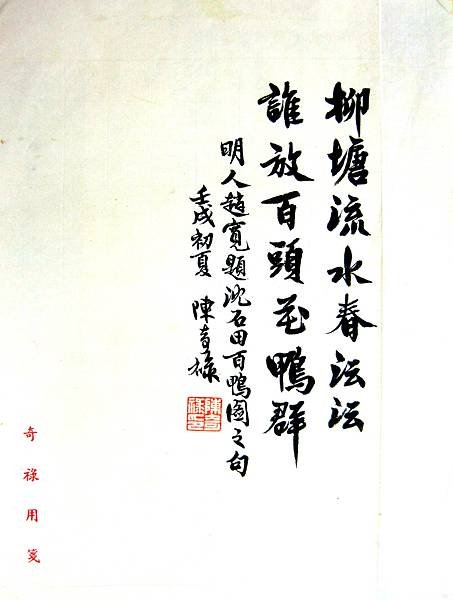 柳塘流水春沄沄
誰放百頭花鴨群
明人趙寬題沈石田百鴨圖之句
壬戌初夏 陳奇祿
陳奇祿印
奇祿用箋